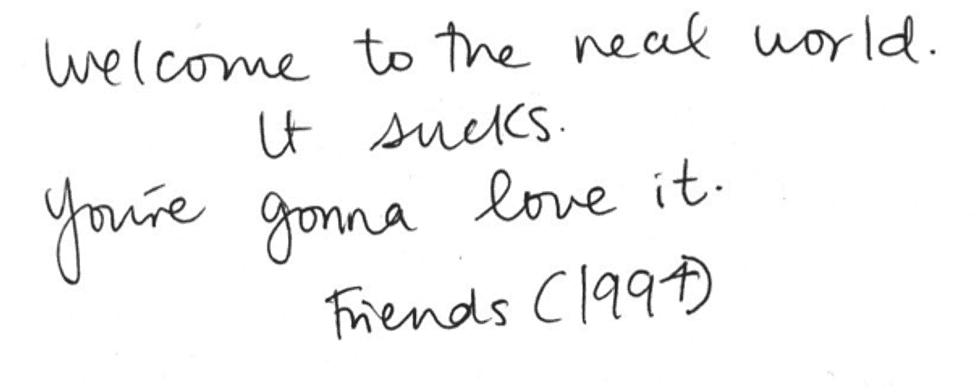 Welcome to the real world.
It sucks.
You're gonna love it.
Friends (1994)